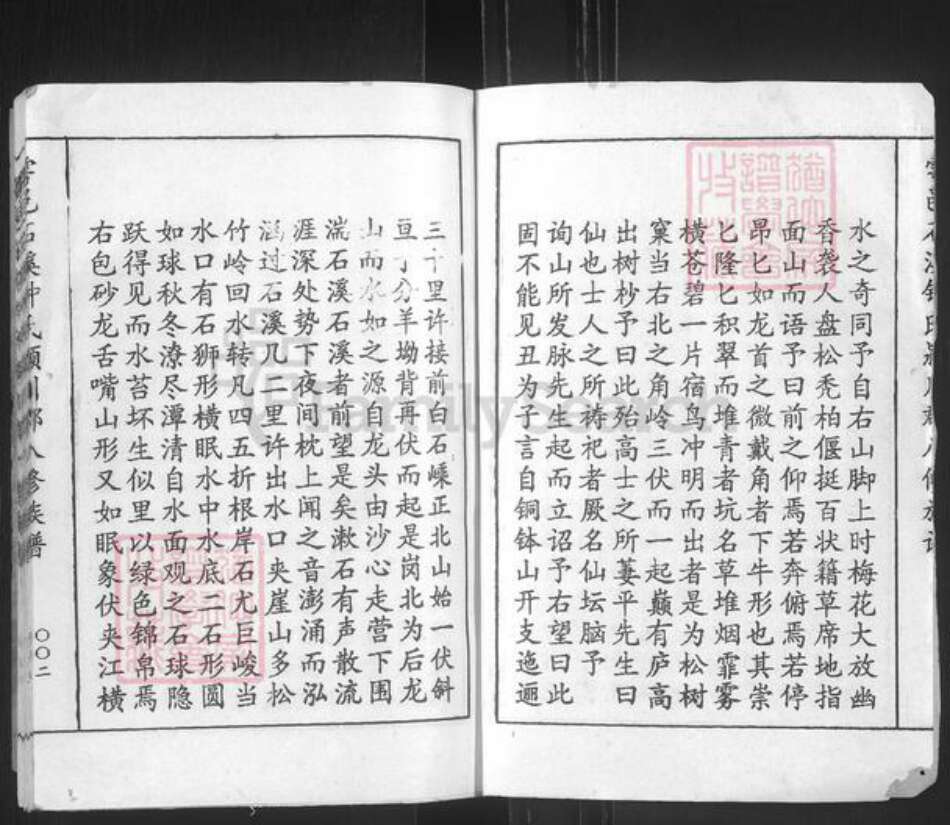 水之奇同予自右山脚上时梅花大放幽
香袭人盘松秃柏偃挺百状籍草席地指
面山而语予曰前之仰焉若奔俯焉若停
昂匕如龙首之微戴角者下牛形也其崇
匕隆匕积翠而堆青者坑名草堆烟霏雾
横苍碧一片宿鸟冲明而出者是为松树
窠当右北之角岭三伏而一起巅有庐高
出树杪予曰此殆高士之所萋平先生曰
仙也士人之所祷祀者厥名仙坛脑予
询山所发脉先生起而立诏予右望曰此
固不能见丑为子言自铜钵山开支迤逦
三十里许接前白石嵊正北山始一伏斜
亘 分羊坳背再伏而起是岗北为后龙
山而水如之源自龙头由沙心走营下围
湍石溪石溪者前望是矣漱石有声散流
涯深处势下夜间枕上闻之音澎涌而泓
涵过石溪几二里许出水口夹崖山多松
竹岭回水转凡四五折根岸石尤巨峻当
水口有石狮形横眠水中水底二石形圆
如球秋冬潦尽潭清自水面观之石球隐
跃得见而水苔坏生似里以绿色锦帛焉
右包砂龙舌嘴山形又如眠象伏夹江横
石溪钟氏颍川郡八修族谱
〇〇二
FamilySearch